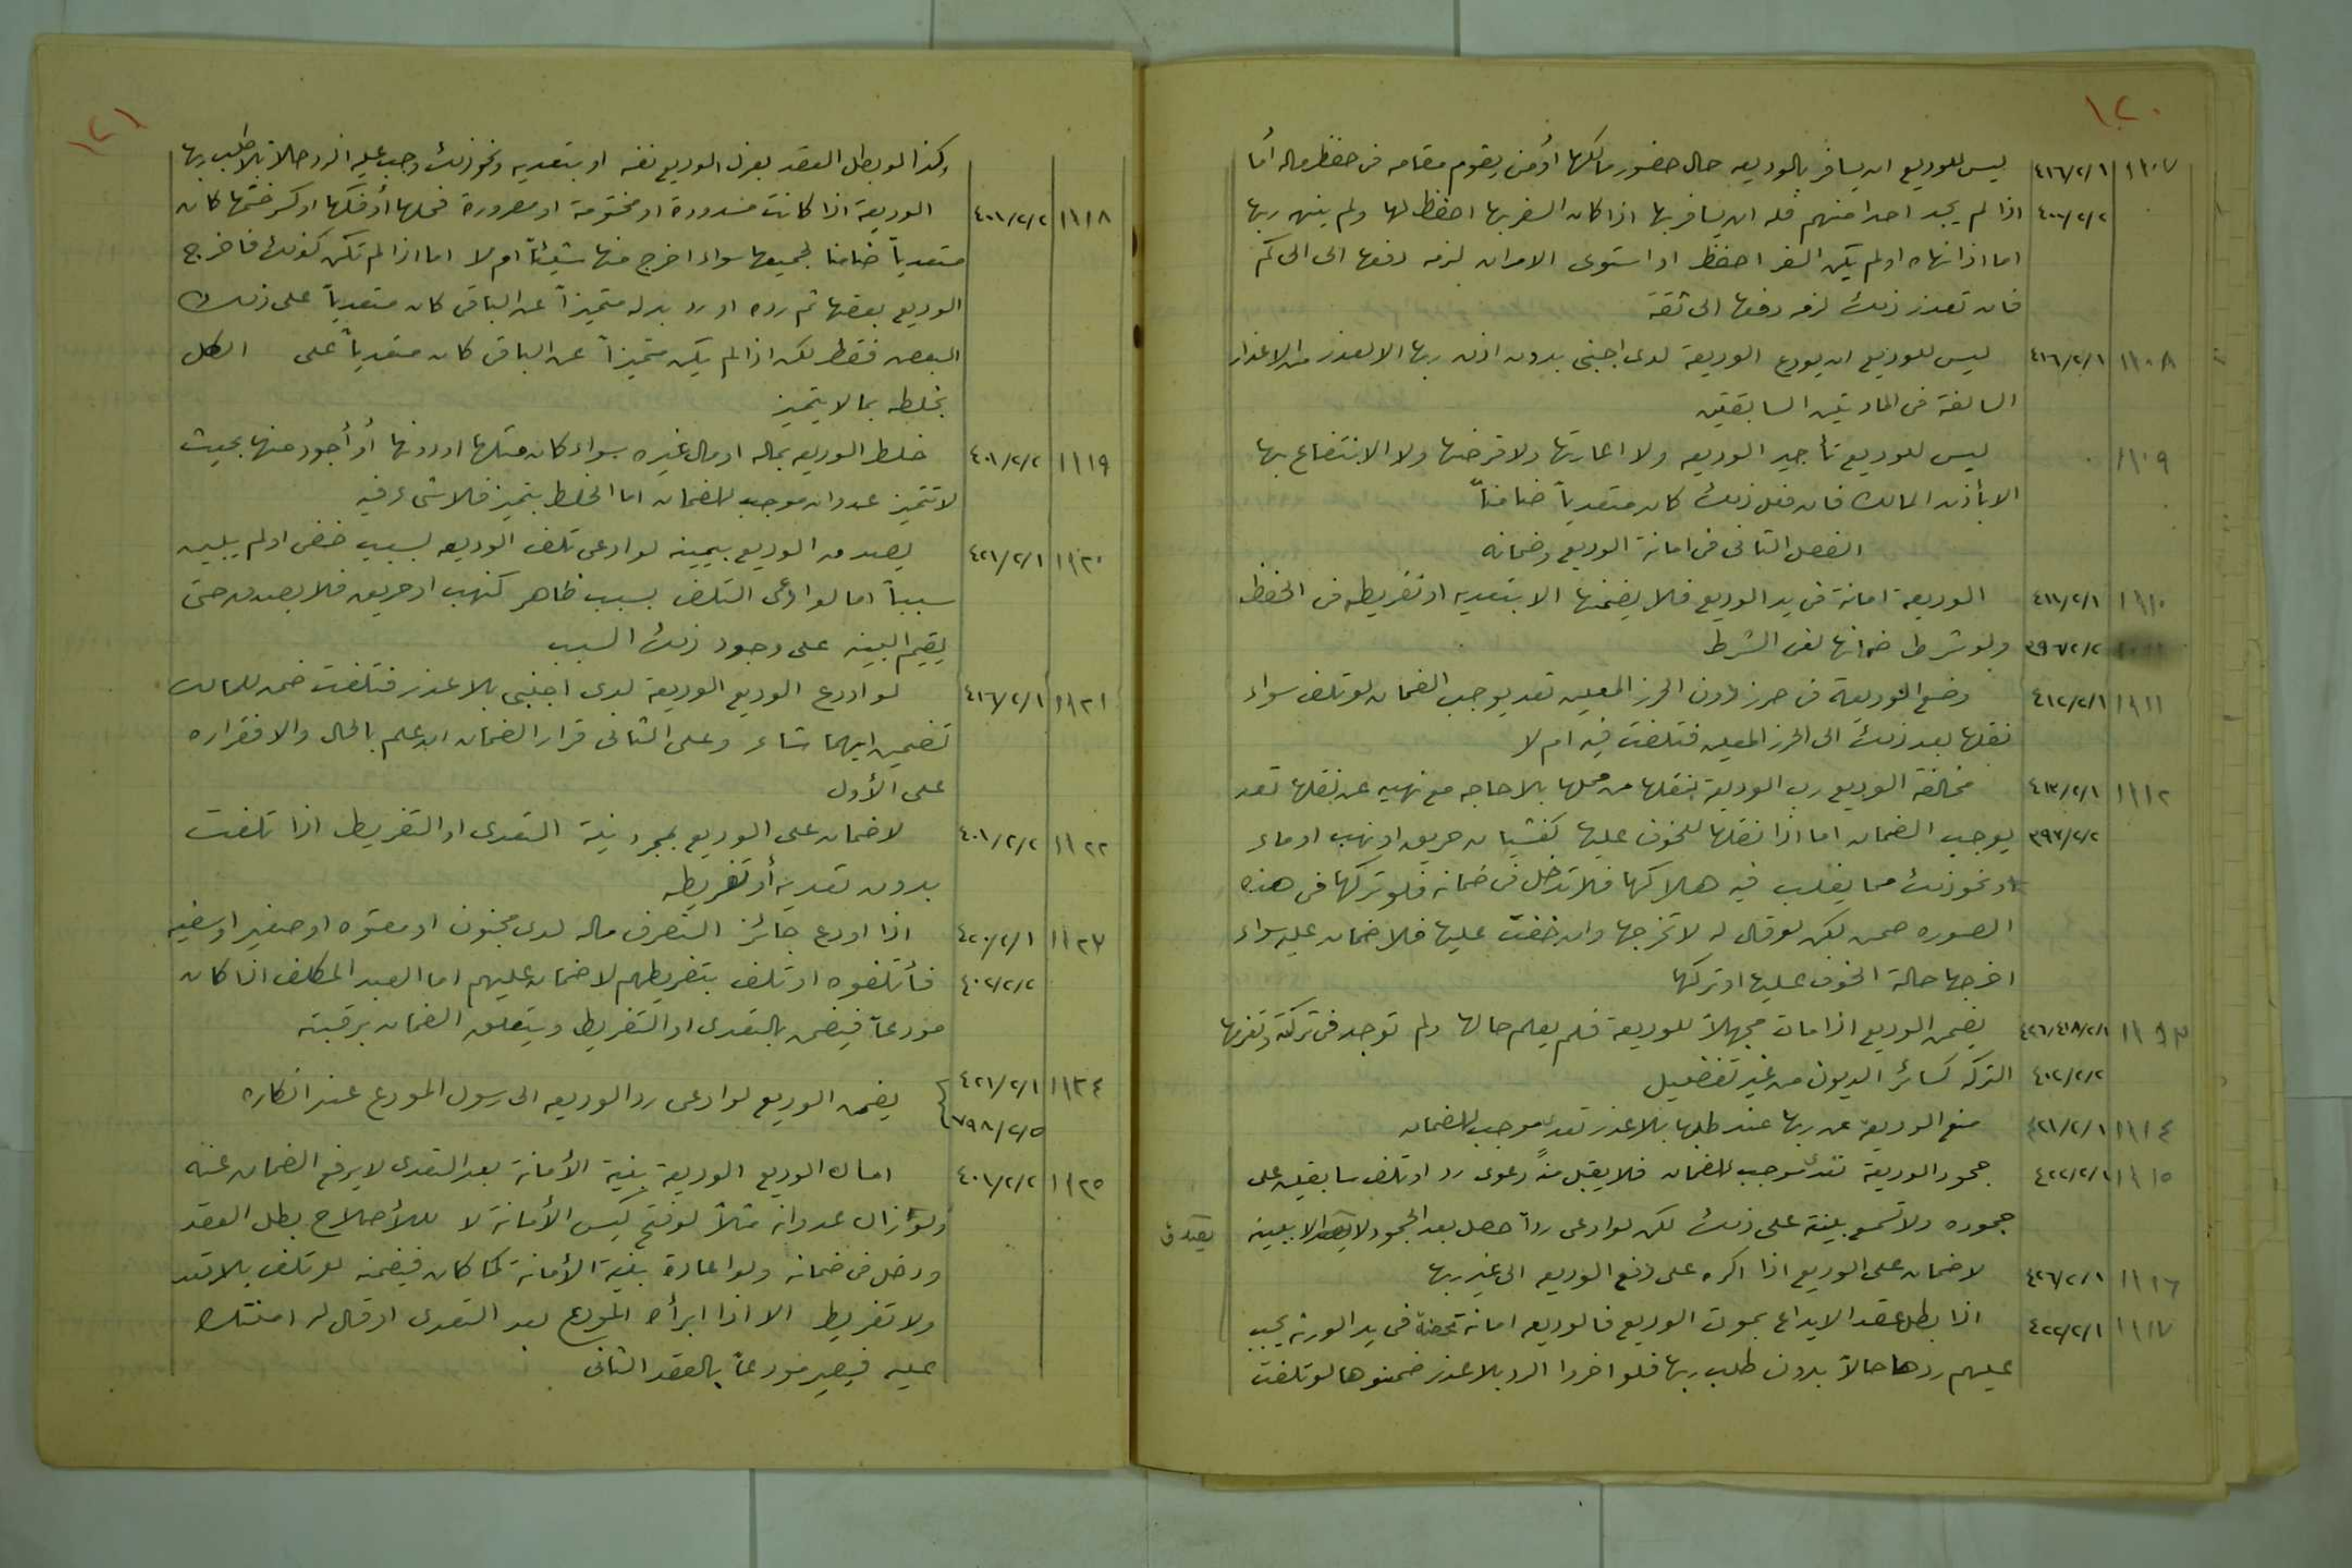 ١٢٠
١١٠٧ ٤١٦/٢/١ ليس للوديع ان يسافر بالوديعه حال حضور مالكها أو من يقوم مقامه فى حفظ ماله أما
٤٠٠/٢/٢ اذا لم يجد احدا منهم فله ان يسافر بها اذا كان السفر بها احفظ لها ولم ينهه ربها
اما اذا نهاه او لم يكن السفر احفظ او استوى الامران لزمه دفعها الى الحاكم
فان تعذر ذلك لزمه دفعها الى ثقة
١١٠٨ ٤١٦/٢/١ ليس للوديع ان يودع الوديعة لدى اجنبى بدون اذن ربها الا لعذر من الاعذار
السالفة فى المادتين السابقتين
١١٠٩ ليس للوديع تأجير الوديعه ولا اعارتها ولا قرضها ولا الانتفاع بها
الا بأذن المالك فان فعل ذلك كان متعدياً ضامناً
الفصل الثانى فى امانة الوديع وضمانه
١١١٠ ٤١١/٢/١ الوديعة امانة فى يد الوديع فلا يضمنها الا بتعديه او تفريطه فى الحفظ
٣٩٦/٢/٢ ولو شرط ضمانها لغى الشرط
١١١١ ٤١٢/٢/١ وضع الوديعة فى حرز دون الحرز المعين تعد يوجب الضمان لو تلفت سواء
نقلها بعد ذلك الى الحرز المعين فتلفت فيه ام لا
١١١٢ ٤١٣/٢/١ مخالفة الوديع رب الوديعة بنقلها من محلها بلا حاجه مع نهيه عن نقلها تعد
٣٩٧/٢/٢ يوجب الضمان اما اذا نقلها للخوف عليها كغشيان حريق او نهب او ماء
او نحو ذلك مما يغلب فيه هلاكها فلا تدخل فى ضمانه فلو تركها فى هذه
الصوره ضمن لكن لو قال له لا تخرجها وان خفت عليها فلا ضمان عليه سواء
اخرجها حالة الخوف عليها او تركها
١١١٣ ٤٢٦/٤١٨/٢/١ يضمن الوديع اذا مات مجهلاً للوديعة فلم يعلم حالها ولم توجد فى تركته وتغرمها
٤٠٢/٢/٢ التركه كسائر الديون من غير تفضيل
١١١٤ ٤٢١/٢/١ منع الوديعة عن ربها عند طلبها بلا عذر تعد موجب للضمان
١١١٥ ٤٢٢/٢/١ جحود الوديعة تعد موجب للضمان فلا يقبل منه دعوى رد او تلف سابقين على
جحوده ولا تسمع بينة على ذلك لكن لو ادعى رداً حصل بعد الجحود لا يصدق الا ببينه
يصدق
١١١٦ ٤٢٦/٢/١ لا ضمان على الوديع اذا اكره على دفع الوديعه الى غير ربها
١١١٧ ٤٢٢/٢/١ اذا بطل عقد الايداع بموت الوديع فالوديعه امانة محضة فى يد الورثه يجب
عليهم ردها حالاً بدون طلب ربها فلو اخروا الرد بلا عذر ضمنوها لو تلفت
١٢١
وكذا لو بطل العقد بعزل الوديع نفسه او بتعديه ونحو ذلك وجب عليه الرد حالاً بلا طلب ربها
١١١٨ ٤٠١/٢/٢ الوديعة اذا كانت مشدودة او مختومة او مصرورة فحلها أو فكها او كسر ختمها كان
متعدياً ضامنا لجميعها سواء اخرج منها شيئاً ام لا اما اذا لم تكن كذلك فاخرج
الوديع بعضها ثم رده او رد بدله متميزاً عن الباقى كان متعدياً على ذلك
البعض فقط لكن اذا لم يكن متميزاً عن الباقى كان متعدياً على الكل
بخلطه بما لا يتميز
١١١٩ ٤٠١/٢/٢ خلط الوديعه بماله او مال غيره سواء كان مثلها او دونها أو أجود منها بحيث
لا تتميز عدوان موجب للضمان اما الخلط بتميز فلا شىء فيه
١١٢٠ ٤٢١/٢/١ يصدق الوديع بيمينه لو ادعى تلف الوديعه بسبب خفى او لم يبين
سبباً اما لو ادعى التلف بسبب ظاهر كنهب او حريق فلا يصدق حتى
يقيم البينه على وجود ذلك السبب
١١٢١ ٤١٦/٢/١ لو اودع الوديع الوديعة لدى اجنبى بلا عذر فتلفت ضمن للمالك
تضمين ايهما شاء وعلى الثانى قرار الضمان ان علم بالحال والا فقراره
على الأول
١١٢٢ ٤٠١/٢/٢ لا ضمان على الوديع بمجرد نية التعدى او التفريط اذا تلفت
بدون تعديه أو تفريطه
١١٢٣ ٤٢٠/٢/١ اذا اودع جائز التصرف ماله لدى مجنون او معتوه او صغير او سفيه
٤٠٢/٢/٢ فأتلفوه او تلف بتفريطهم لا ضمان عليهم اما العبد المكلف اذا كان
مودعاً فيضمن بالتعدى او التفريط ويتعلق الضمان برقبته
١١٢٤ ٤٢١/٢/١ يضمن الوديع لو ادعى رد الوديعه الى رسول المودع عند انكاره
٧٩٨/٢/٥
١١٢٥ ٤٠١/٢/٢ امساك الوديع الوديعة بنية الأمانة بعد التعدى لا يرفع الضمان عنه
ولو زال عدوانه مثلاً لو فتح كيس الأمانة لا للأصلاح بطل العقد
ودخل فى ضمانه ولو اعاده بنية الأمانة كما كان فيضمنه لو تلف بلا تعد
ولا تفريط الا اذا ابرأه المودع بعد التعدى او قال له امنتك
عليه فيصير مودعاً بالعقد الثانى